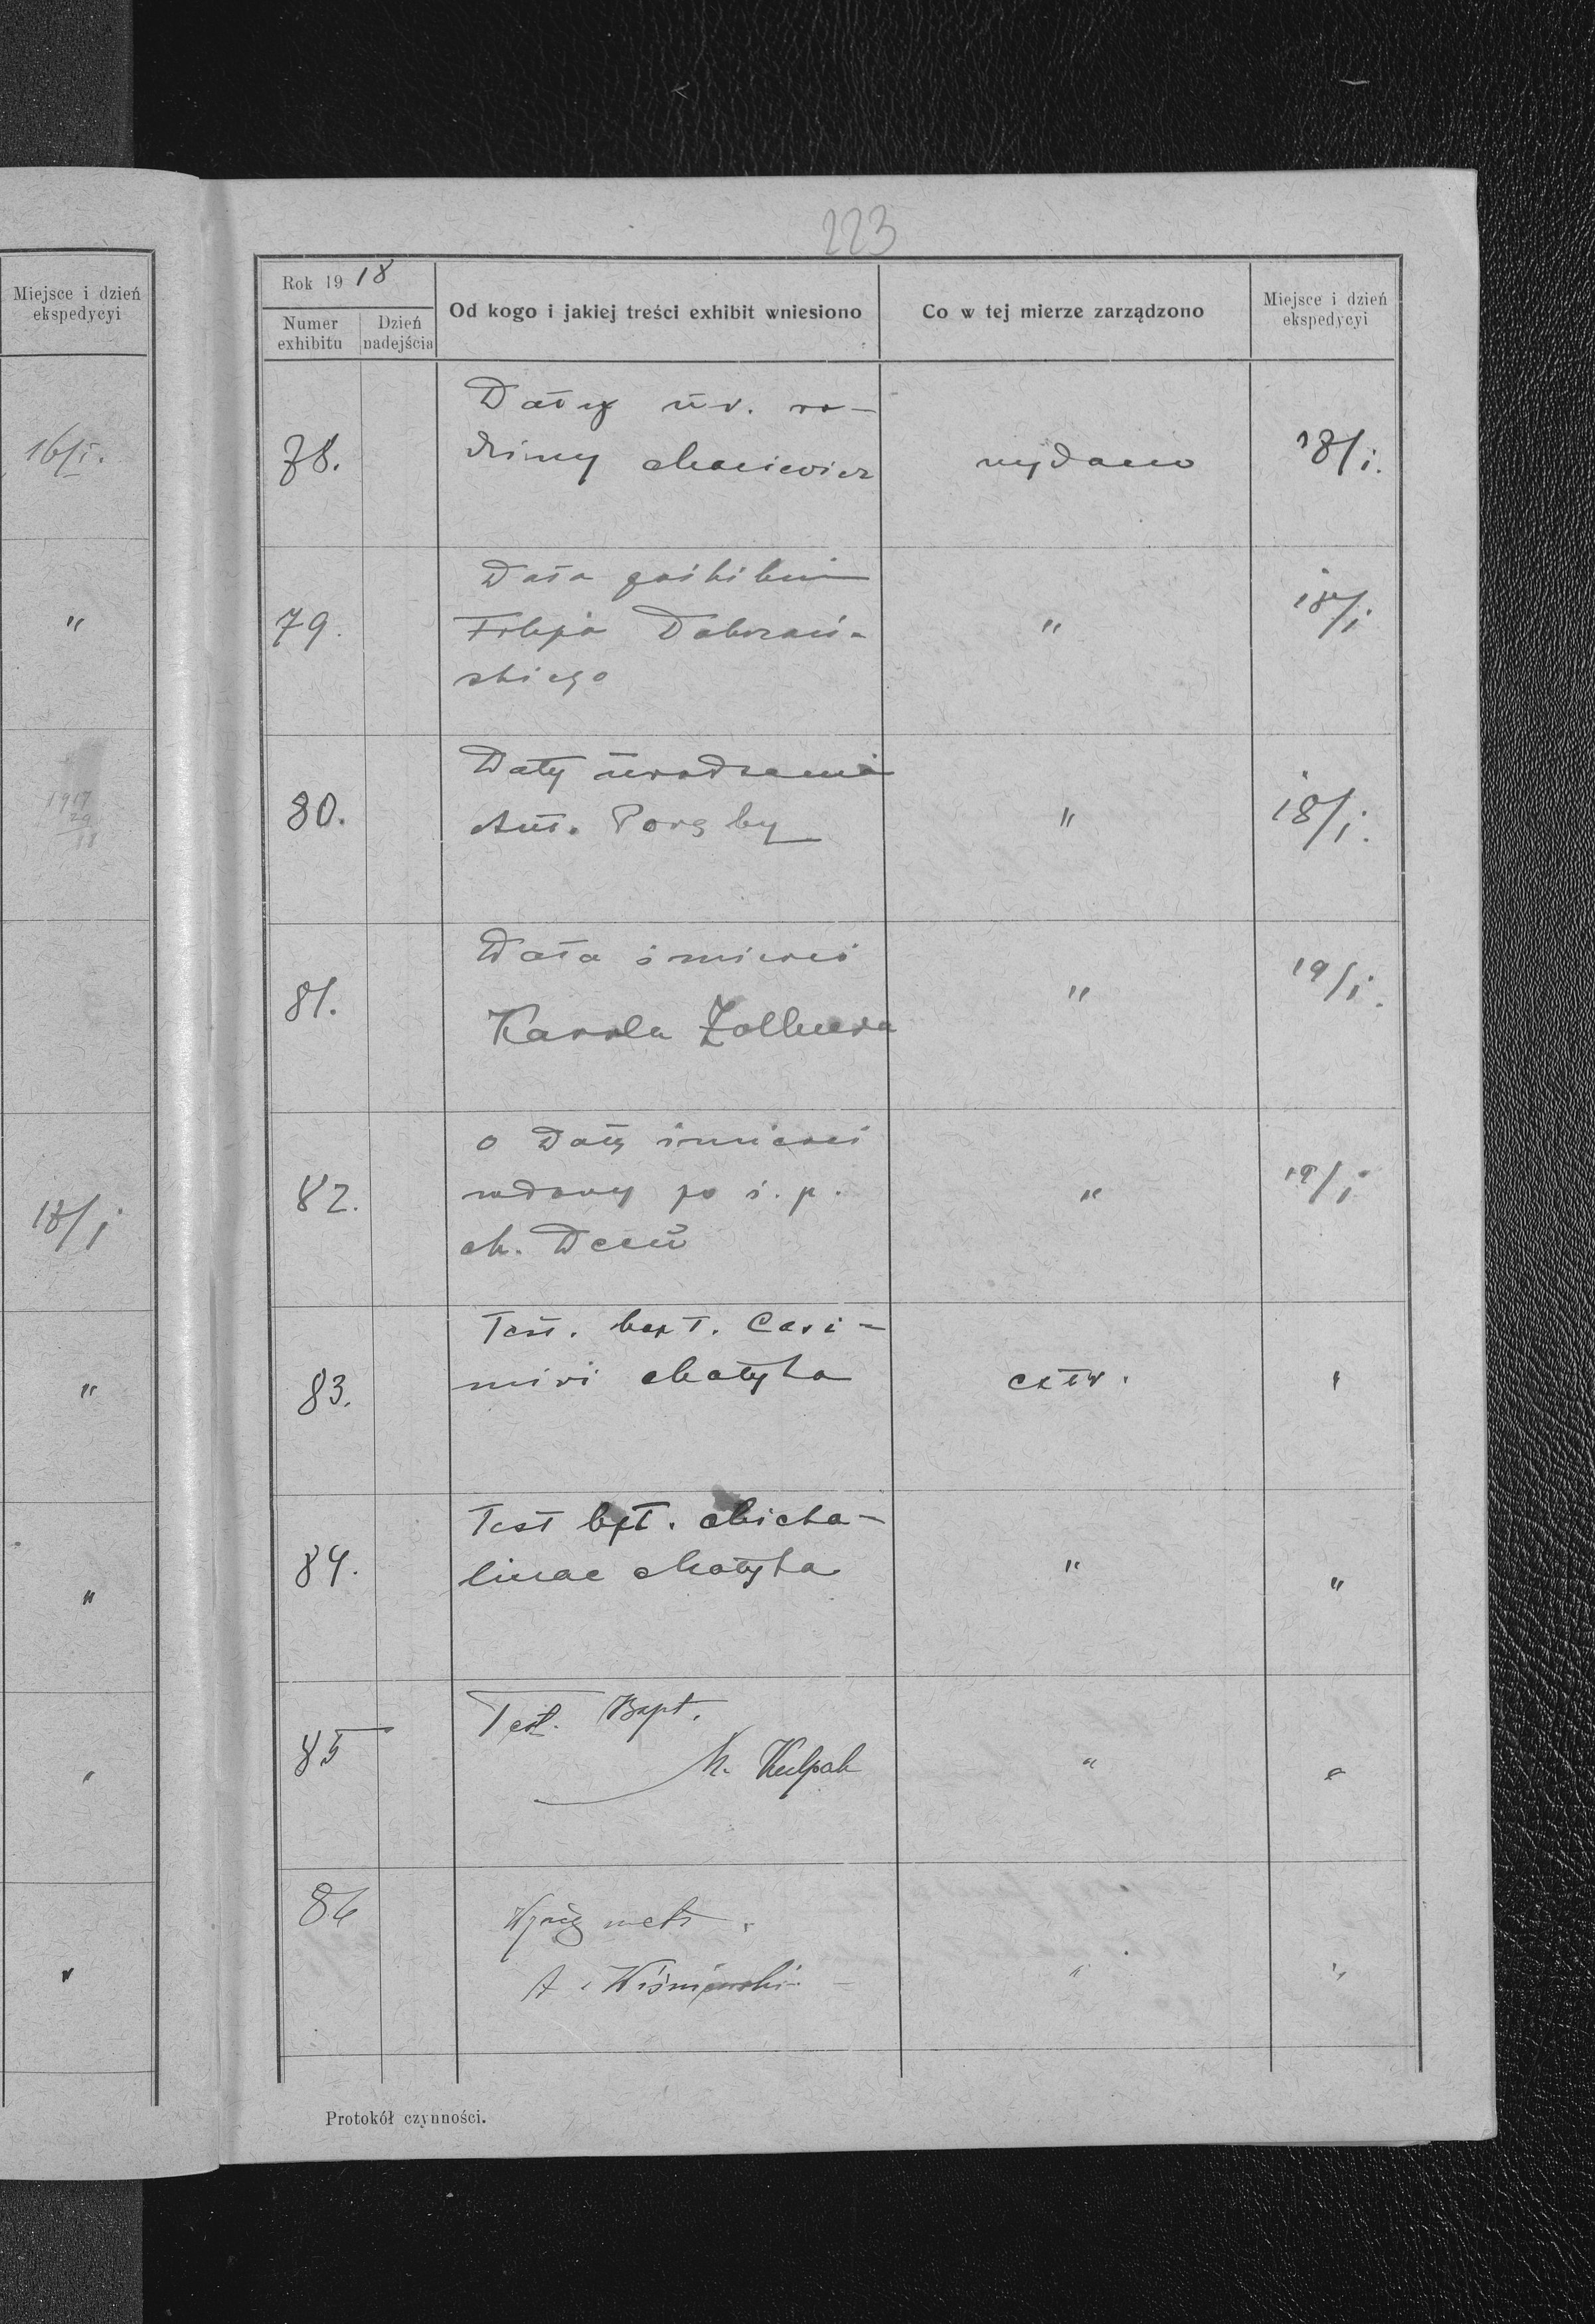 Miejsce i dzień
ekspedycyi
16/I.
"
1917
18/I
"
"
"
"
223
Rok 1918
Numer
exhibitu
Dzień
nadejścia
Od kogo i jakiej treści exhibit wniesiono
Co w tej mierze zarządzono
Miejsce i dzień
ekspedycyi
78.
Daty ur. ro-
dziny Maciewicz
wydano
18/I.
79.
Data
Filipa Dobrzań-
skiego
"
18/I
80.
Daty urodzenia
Ant. Poręby
"
18/I.
81.
Data śmierci
Karola Zollnera
"
19/I.
82.
o datę śmierci
wdowy po ś. p.
M.
"
19/I
83.
Test. bapt. Casi-
miri Matyka
extr.
"
84.
Test bpt. Micha-
linae Matyka
"
"
85
Test. Bapt.
M. Kulpak
"
"
86
Wyciąg metr.
A. Wiśniewski
"
"
Protokół czynności.